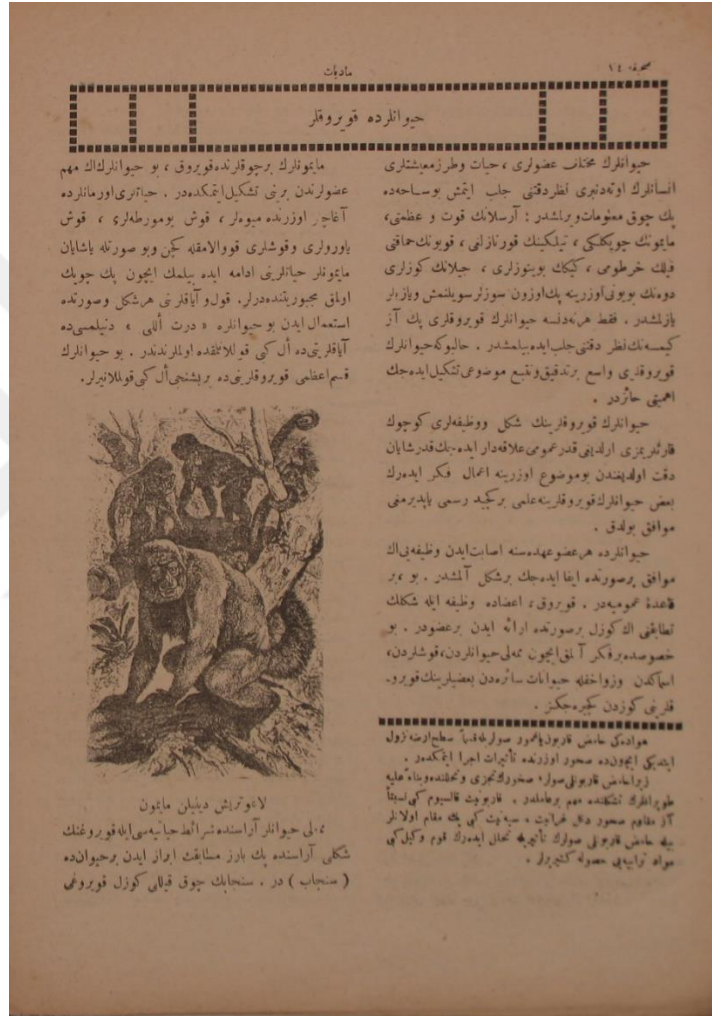 صحیفه ١٤
مادیات
حیوانلرده قویروقلر
حیوانلرك مختلف عضولری ، حیات وطرز معیشتلری
انسانلرك اوته‌دنبری نظردقتنی جلب ایتمش بوساحه‌ده
پك چوق معلومات ویرلمشدر : آرسلانك قوت و عظمتی،
مایمونك چویكلكی ، تیلكینك قورنازلغی ، قویونك حماقتی
فیلك خرطومی ، كیكك بوینوزلری ، جیلانك كوزلری
دوه‌نك بویونی اوزرینه پك اوزون سوزلر سویلنمش ویازیلر
یازلمشدر . فقط هرنه‌دنسه حیوانلرك قویروقلری پك آز
كیمسه‌نك نظر دقتنی جلب ایده‌بیلمشدر . حالبوكه حیوانلرك
قویروقلری واسع برتدقیق وتتبع موضوعی تشكیل ایده‌جك
اهمیتی حائزدر .
حیوانلرك قویروقلرینك شكل ووظیفه‌لری كوچوك
قارئلریمزی اولدیغی قدر عمومی علاقه‌دار ایده‌جك قدر شایان
دقت اولدیغندن بوموضوع اوزرینه اعمال فكر ایده‌رك
بعض حیوانلرك قویروقلرینه علمی بركچید رسمی یاپدیرمغی
موافق بولدق .
حیوانلرده هرعضو عهده‌سنه اصابت ایدن وظیفه‌یی اك
موافق برصورتده ایفا ایده‌جك برشكل آلمشدر . بو ، بر
قاعدهٔ عمومیه‌در . قویروق ، اعضاده وظیفه ایله شكلك
تطابقنی اك كوزل برصورتده ارائه ایدن برعضودر . بو
خصوصده برفكر آلمق ایچون ممه‌لی حیوانلردن، قوشلردن،
اسماكدن وزواحفله حیوانات سائره‌دن بعضیلرینك قویرو-
قلرینی كوزدن كچیره‌جكز .
هواده‌كی حامض قاربون یاغمور صولریله قسماً سطح ارضه نزول
ایتدیكی ایچون‌ده صخور اوزرنده تأثیرات اجرا ایتمكده‌در .
زیرا حامض قاربونلی صولر، صخورك تجزی وتحللنده وبناءً علیه
طوپراقلرك تشكلنده مهم برعاملدر . قاربونیت قالسیوم كبی نسبتاً
آز مقاوم صخور دكل غرانیت ، سیه‌نیت كبی پك مقاوم اولانلر
بیله حامض قاربونلی صولرك تأثیریله تحلل ایده‌رك قوم وكیل كبی
مواد ترابیه‌یی حصوله كتیررلر .
مایمونلرك برچوقلرنده قویروق ، بو حیوانلرك اك مهم
عضولرندن برینی تشكیل ایتمكده‌در . حیاتلری اورمانلرده
آغاجلر اوزرنده میوه‌لر ، قوش یومورطه‌لری ، قوش
یاورولری وقوشلری قووالامقله كچن وبو صورتله یاشایان
مایمونلر حیاتلرینی ادامه ایده بیلمك ایچون پك چویك
اولمق مجبوریتنده‌درلر. قول و آیاقلرنی هرشكل وصورتده
استعمال ایدن بو حیوانلره « درت أللی » دنیلمسی‌ده
آیاقلرینی‌ده أل كبی قوللانلمقده اولملرندندر . بو حیوانلرك
قسم اعظمی قویروقلرینی‌ده بربشنجی أل كبی قوللانیرلر.
لاغوتریش دینیلن مایمون
ممه‌لی حیوانلر آراسنده شرائط حیاتیه‌سی ایله قویروغنك
شكلی آراسنده پك بارز مطابقت ابراز ایدن برحیوان‌ده
( سنجاب ) در . سنجابك چوق قیللی كوزل قویروغی